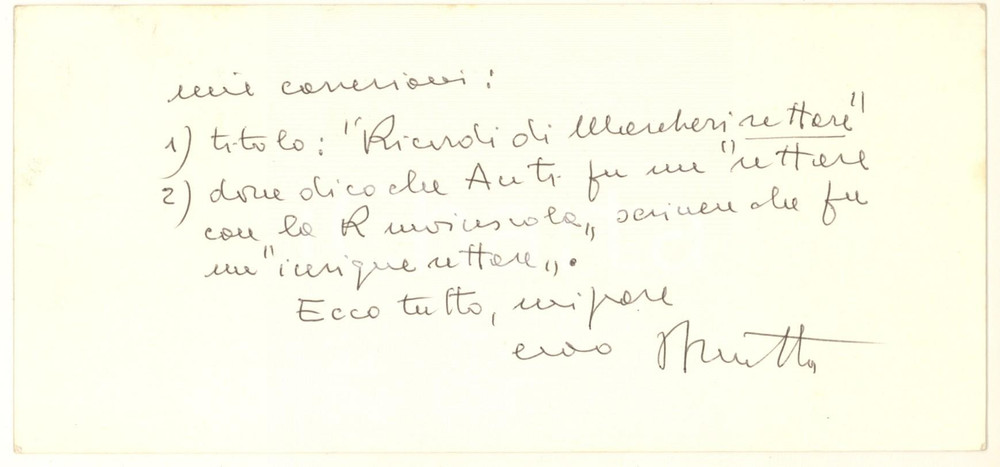 mie correzioni:
1) titolo: "Ricordi di Marchesi rettore"
2) dove dico che Anti fu un "rettore
con la R maiuscola„ scrivere che fu
un "insigne rettore„.
Ecco tutto, mi pare